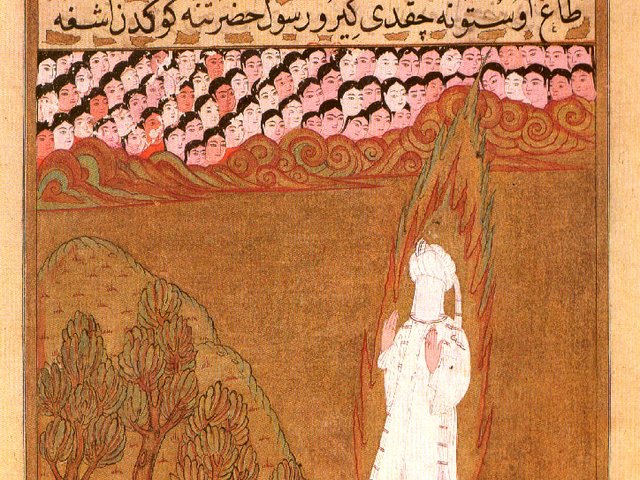 طاغ اوستونه چقدی كیرو رسول حضرتنه كوكدن اشغه